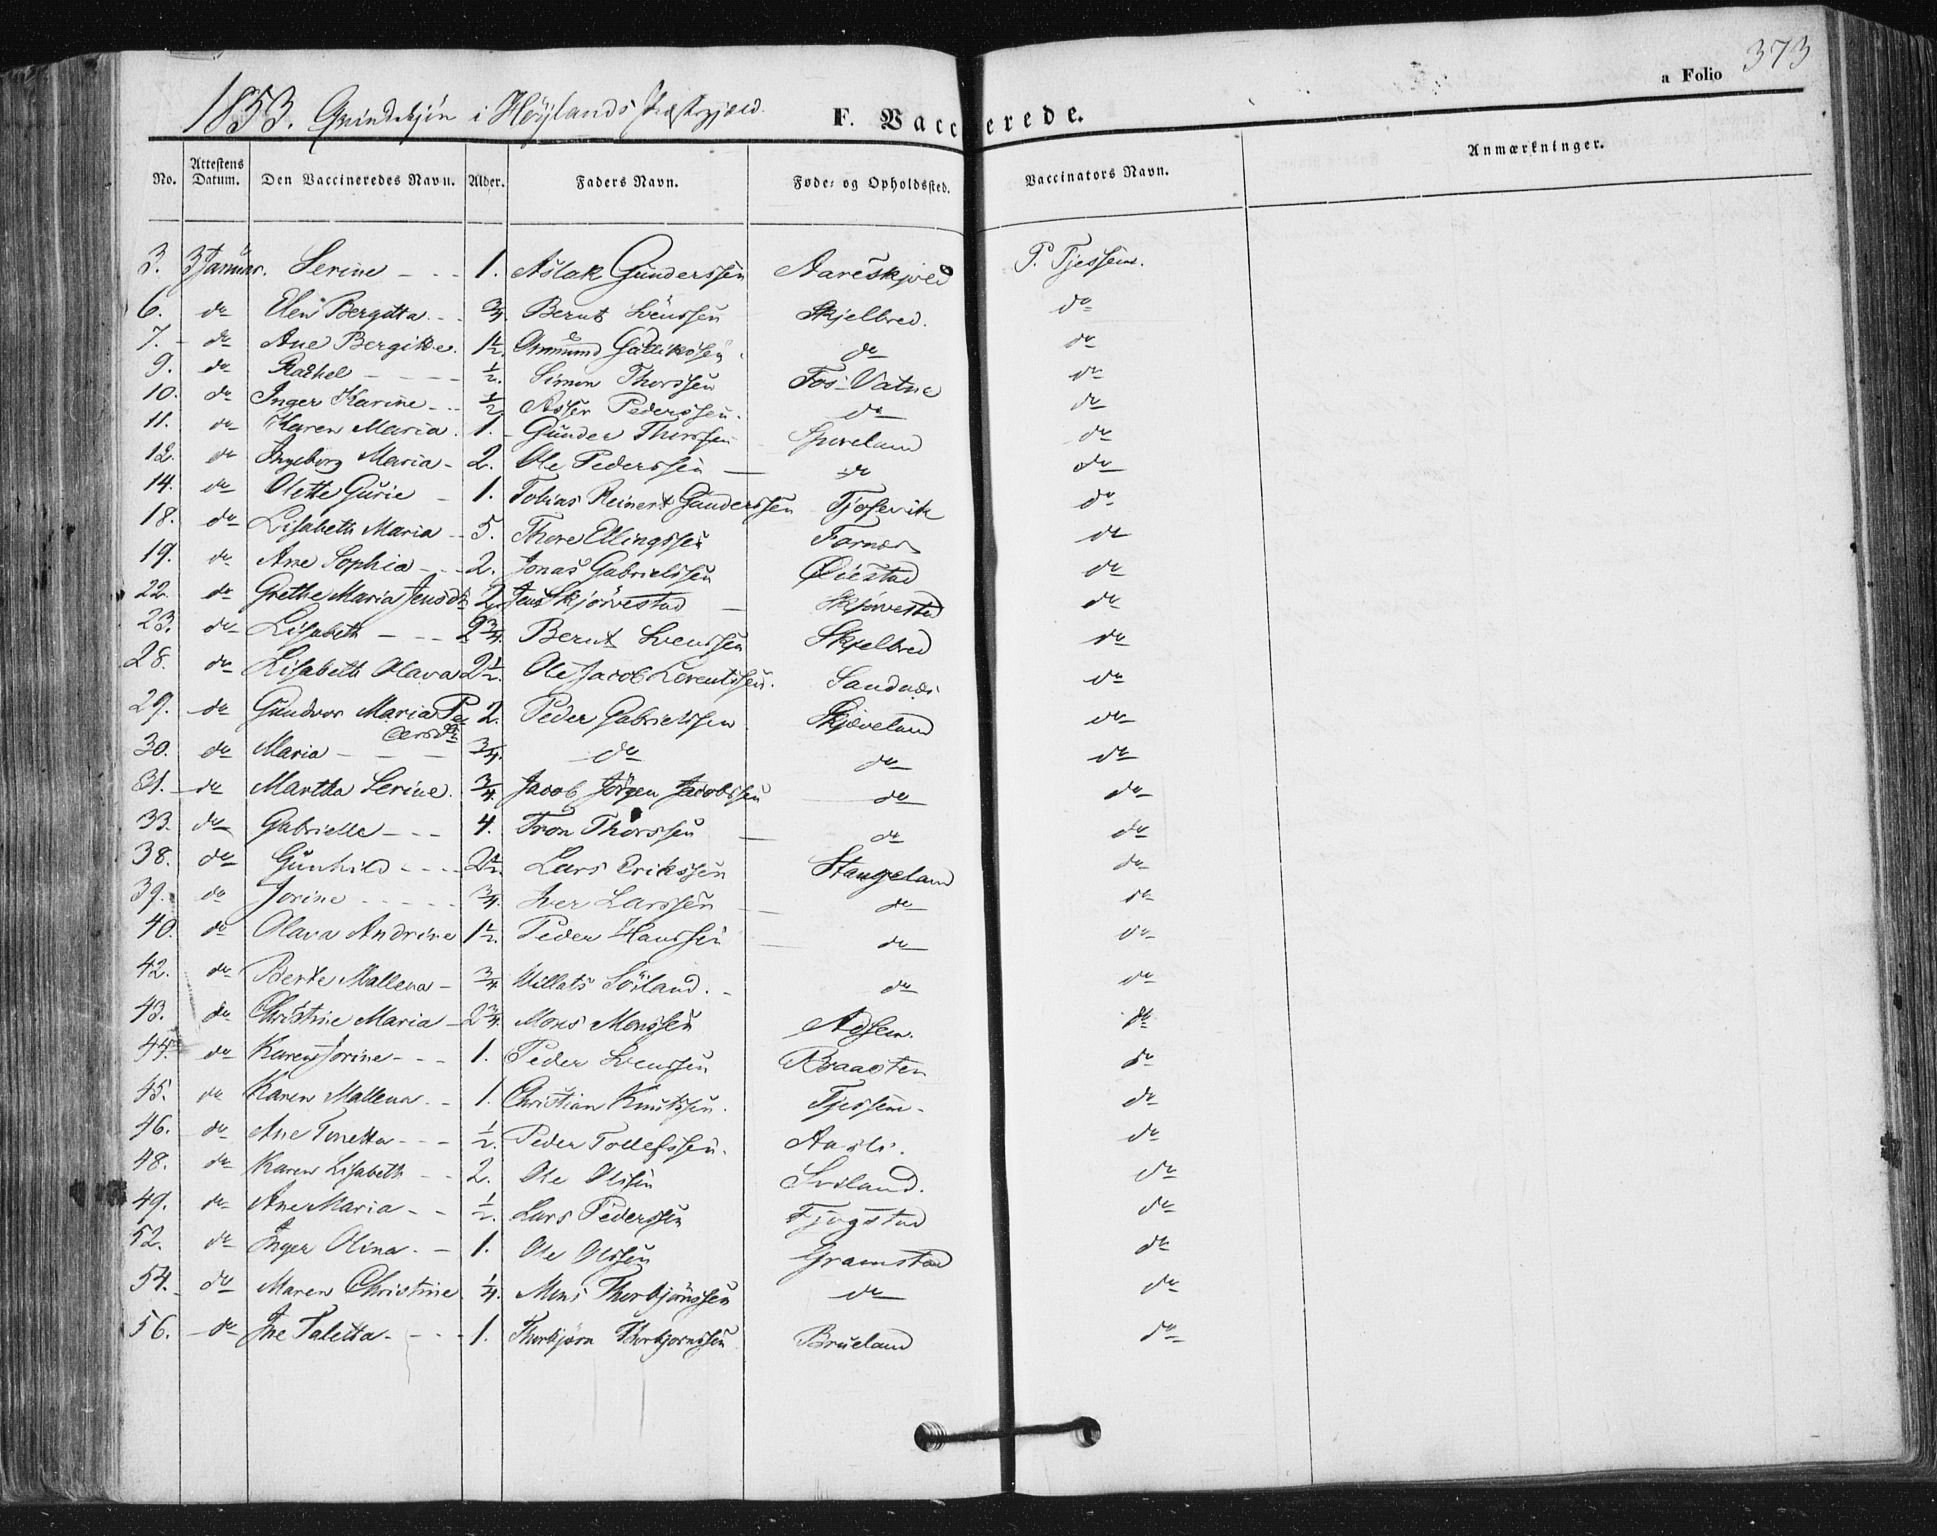 373
a Folio
1853. Qvindekjön i Höylands Præstegjæld.
F. Vaccinerede.
No. Attestens Datum. Den Vaccineredes Navn. Alder. Faders Navn. Føde- og Opholdssted. Vaccinators Navn. Anmærkninger.
3. 3 Januar. Serine - - - 1. Aslak Gunderssen Aareskjold P. Tjessem.
6. do Elen Bergitta - - 3/4. Bernt Svenssen Skjelbred. do
7. - do Ane Bergitte. 1 1/2. Ommund do do
9. do Rachel - - - - 1/2. Simon Thorssen Fos-Vatne do
10. do Inger Karine - - 1/2 Asser Pederssen. do do
11. do Karen Maria. 1. Gunder Thorssen do
12. do Ingeborg Maria - 2. Ole Pederssen - do do
14. do Olette Gurie - 1. Tobias Reinert Gunderssen Tjosevik do
18. do Lisabeth Maria - - 5. Thore Ellingssen do
19. do Ane Sophia - - - 2. Jonas Gabrielssen Öiestad do
22. do Grethe Maria Jensdt 2. Jens Skjörvestad - Skjörvestad do
23. do Lisabeth - - - 2 3/4. Bernt Svenssen Skjelbred do
28. do Lisabeth Olava 2 1/2. Ole Jacob Lorentssen. Sandnæs do
29. do Gundvor Maria Pedersdtr 2. Peder Gabrielssen Skjæveland do
30. do Maria - - - 3/4. do do do
31. do Martha Serine. 3/4. Jacob Jörgen Jacobssen do do
33. do Gabrielle - - - 4. Tron Thorssen - do do
38. do Gunhild - - - - 2 1/2. Lars Erikssen Stangeland do
39. do Jorine - - - - - 3/4. Iver Larssen - do do
40. do Olava Andrine 1 1/2. Peder Hanssen - do do
42. do Berte Mallena - 3/4 Willats Söiland. - do do
43. do Christine Maria - 2 3/4. Mons Monssen Adsem. do
44. do Karen Jorine - - - 1. Peder Svenssen Braasten do
45. do Karen Mallena. - 1. Christian Knutssen. Tjessem - do
46. do Ane Tonetta - - - 1/2. Peder Tollefssen. do
48. do Karen Lisabeth - - 2. Ole Olssen Sviland. do
49. do Ane Maria - - 1/2. Lars Pederssen Fjogstad do
52. do Inger Olina. - 1. Ole Olssen Gramstad do
54. do Maren Christine 1/4. Mons Thorbjörnssen do do
56. - do Ine Taletta - - - 1. Thorbjörn Thorbjornssen Brueland do